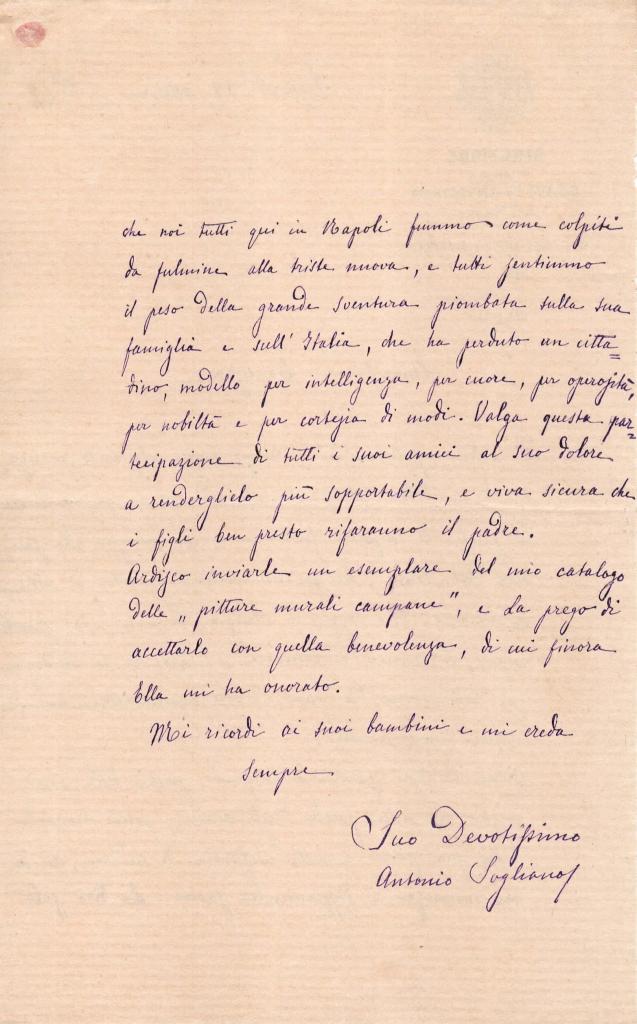 che noi tutti qui in Napoli fummo come colpiti
da fulmine alla triste nuova, e tutti sentimmo
il peso della grande sventura piombata sulla sua
famiglia e sull' Italia, che ha perduto un citta=
dino, modello per intelligenza, per cuore, per operosità,
per nobiltà e per cortesia di modi. Valga questa par=
tecipazione di tutti i suoi amici al suo dolore
a renderglielo più sopportabile, e viva sicura che
i figli ben presto rifaranno il padre.
Ardisco inviarle un esemplare del mio catalogo
delle „ pitture murali campane ", e La prego di
accettarlo con quella benevolenza, di cui finora
Ella mi ha onorato.
Mi ricordi ai suoi bambini e mi creda
sempre
Suo Devotissimo
Antonio Sogliano